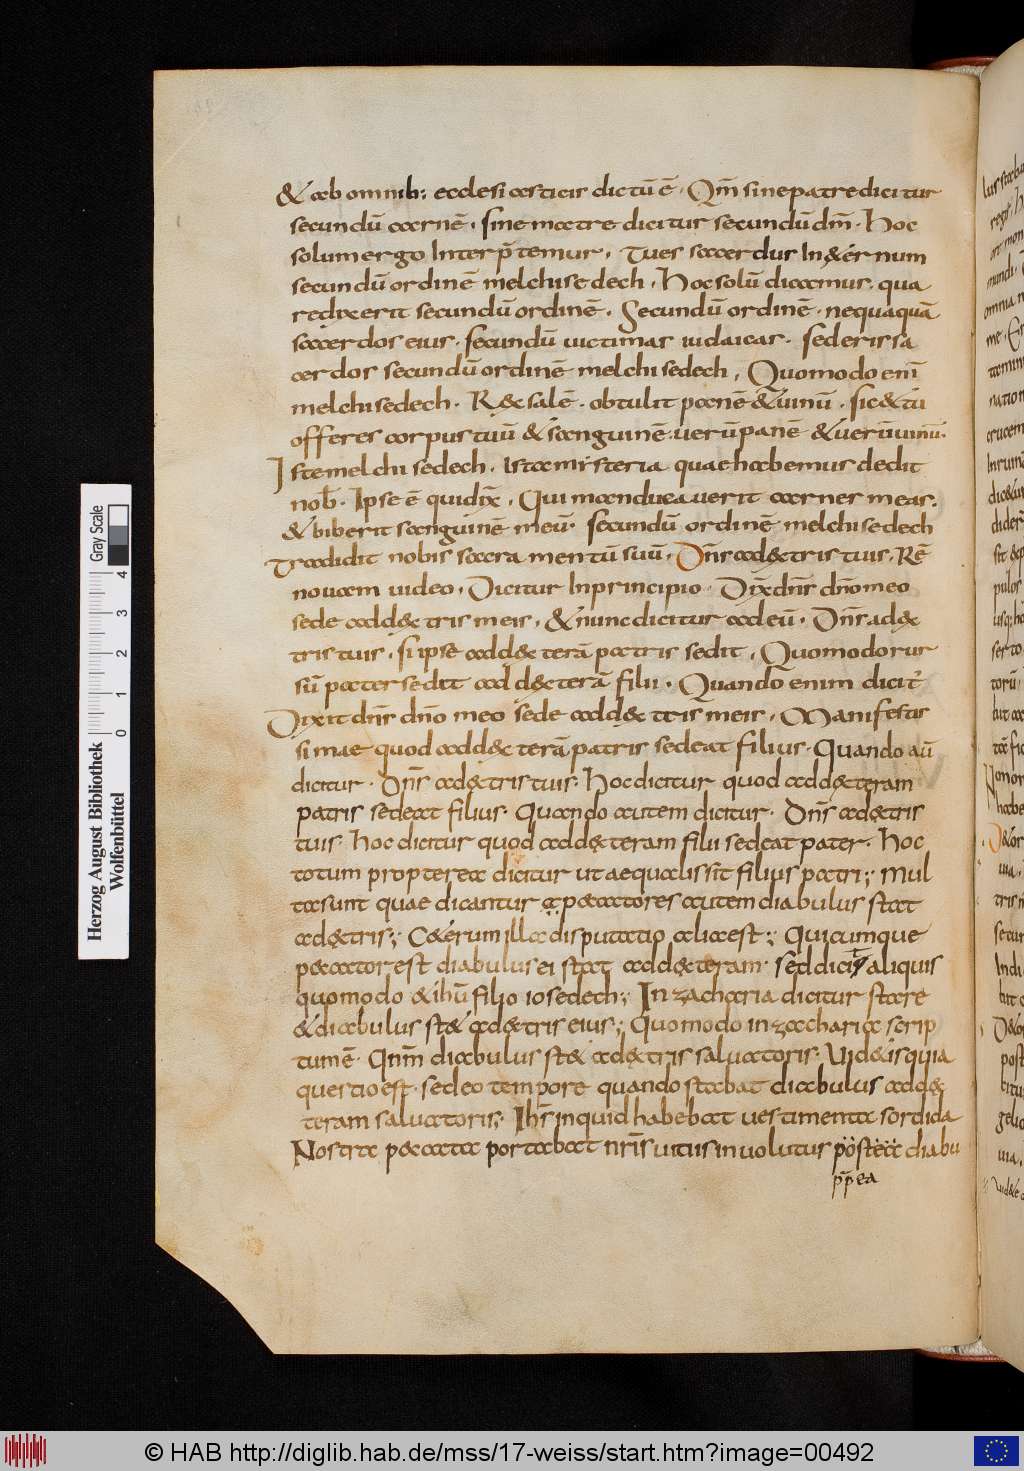 & ab omnib; ecclesiasticis dictū ē. Qm̄ sine patre dicitur
secundū carnē. sine matre dicitur secundū dm̄. Hoc
solum ergo Interp̄temur. Tu es sacerdos In&ernum
secundū ordinē melchisedech. Hoc solū dicamus. qua
re dixerit secundū ordinē. Secundū ordinē. nequaquā
sacerdos eius. secundū uictimas iudaicas. sed eris sa
cerdos secundū ordinē melchisedech. Quomodo enī
melchisedech. Rex salē. obtulit panē & uinū. sic & tū
offeres corpus tuū & sanguinē. uerū panē & uerū uinū.
Iste melchisedech. ista misteria quae habemus dedit
nob̄. Ipse ē qui dix̄. Qui manducauerit carnes meas.
& biberit sanguinē meū. secundū ordinē melchisedech
Tradidit nobis sacramentū suū. Dn̄s ad&tris tuis. Rē
nouam uideo. Dicitur In principio. Dix̄ dn̄s dn̄o meo
sede add&tris meis. & nunc dicitur ad eū. Dn̄s ad&
tris tuis. si ipse add&terā patris sedit. Quomodo rur
sū pater sedit add&terā filii. Quando enim dicit̄
Dixit dn̄s dn̄o meo sede add&tris meis. Manifestis
simae quod add&terā patris sedeat filius. Quando aū
dicitur. Dn̄s ad&tris tuis. Hoc dicitur quod add&teram
patris sedeat filius. Quando autem dicitur. Dn̄s ad&tris
tuis. Hoc dicitur quod add&teram filii sedeat pater. Hoc
totum propterea dicitur ut aequalis sit filius patri; Mul
ta sunt quae dicantur a peccatores autem diabulus stat
ad&tris; C&erum illa disputatio alia est; Quicumque
peccator est diabulus ei stat add&teram. sed dicit aliquis
quomodo & ihū filio iosedech; In zacharia dicitur stare
& diabulus st& ad&tris eius; Quomodo in zacharia scrip
tum ē. Qnm̄ diabulus st& ad&tris saluatoris. Uid& is quia
questio est. sed eo tempore quando stabat diabulus add&
teram saluatoris; Ihs̄ inquid habebat uestimenta sordida
Nostra peccata portabat nr̄is uitiis inuolutus postea diabu
pp̄ea
Herzog August Bibliothek
Wolfenbüttel
0 1 2 3 4
Gray Scale
© HAB http://diglib.hab.de/mss/17-weiss/start.htm?image=00492